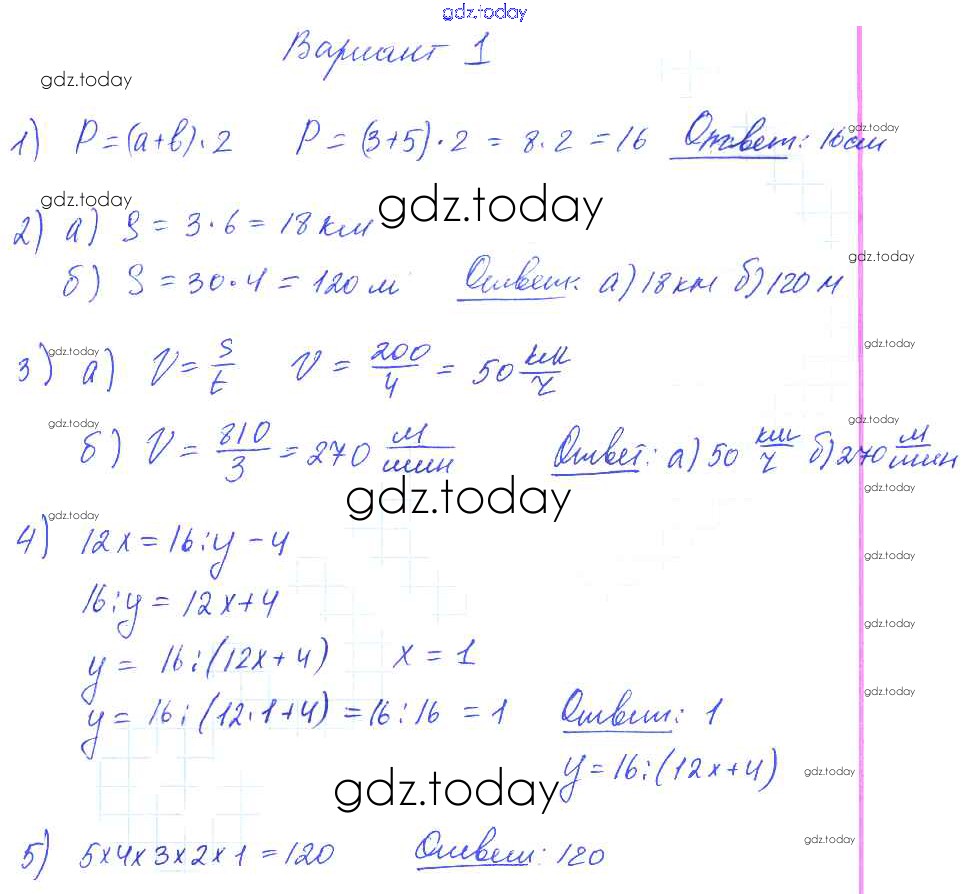 gdz.today
Вариант 1
gdz.today
1) P = (a+b)·2 P = (3+5)·2 = 8·2 = 16 Ответ: 16см
gdz.today
gdz.today
gdz.today
2) а) S = 3·6 = 18 км
gdz.today
б) S = 30·4 = 120 м Ответ: а) 18 км б) 120 м
gdz.today
gdz.today
3) а) V = S/t V = 200/4 = 50 км/ч
gdz.today
gdz.today
б) V = 810/3 = 270 м/мин Ответ: а) 50 км/ч б) 270 м/мин
gdz.today
gdz.today
gdz.today
4) 12x = 16:y - 4
gdz.today
16:y = 12x+4
gdz.today
y = 16:(12x+4) x = 1
gdz.today
y = 16:(12·1+4) = 16:16 = 1 Ответ: 1
y = 16:(12x+4)
gdz.today
gdz.today
gdz.today
5) 5x4x3x2x1 = 120 Ответ: 120